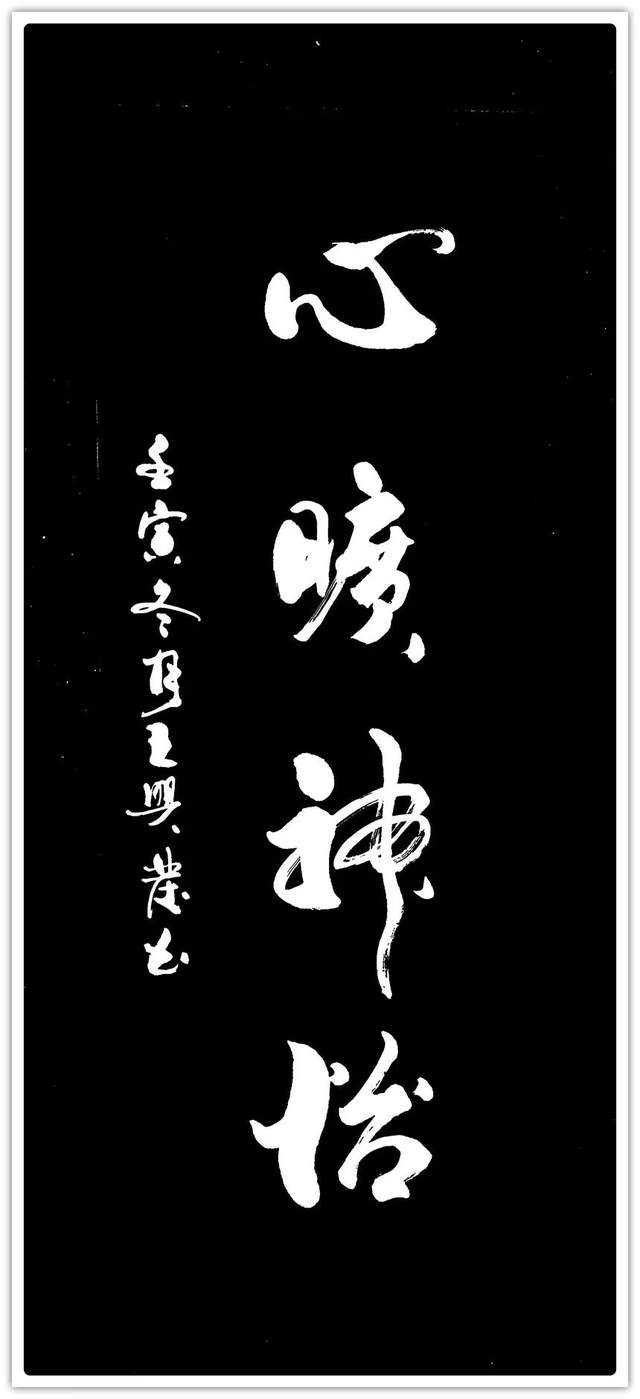 心曠神怡
壬寅冬月王興業書